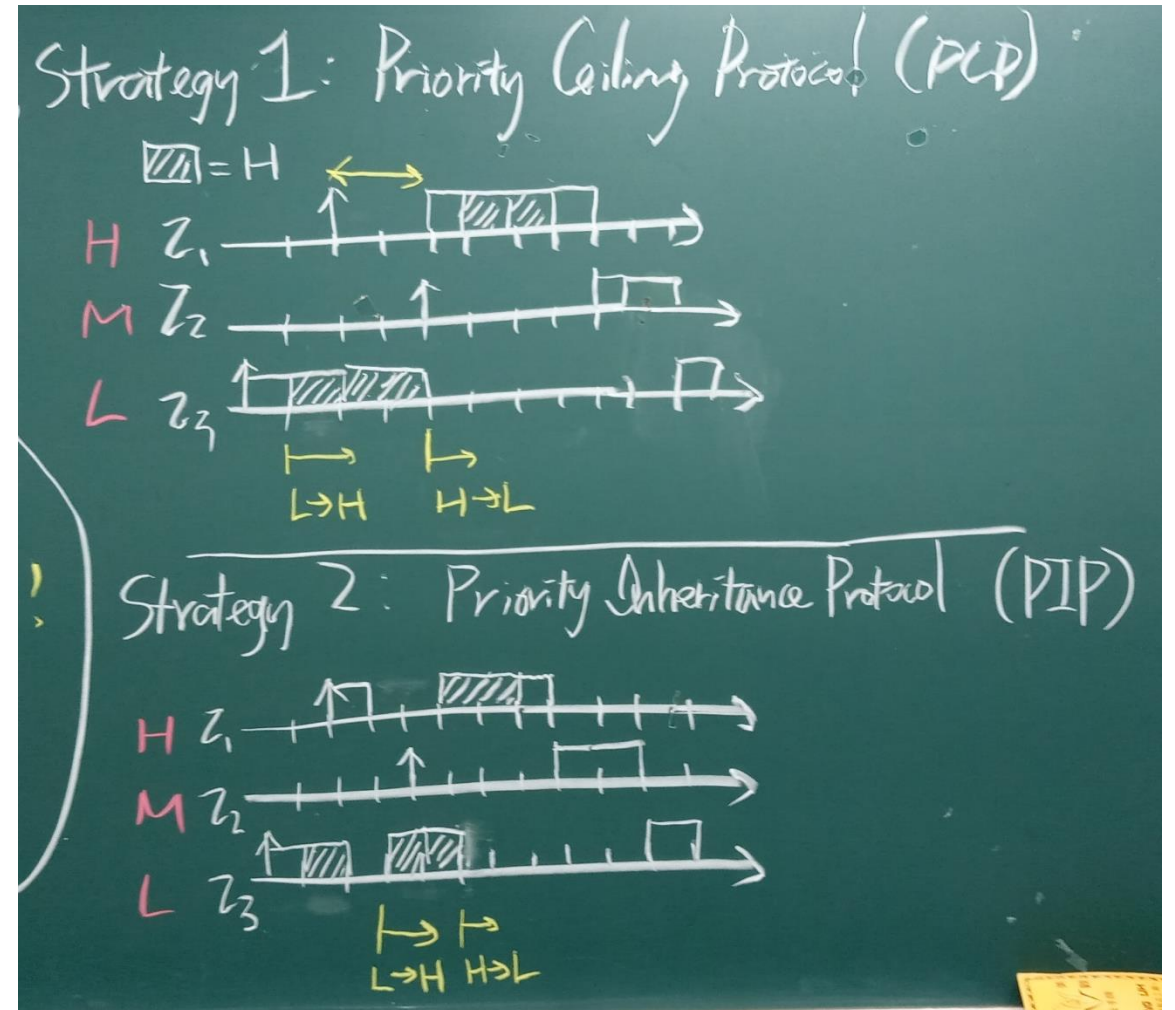 Strategy 1: Priority Ceiling Protocol (PCP)
= H
H τ₁
M τ₂
L τ₃
L→H H→L
Strategy 2: Priority Inheritance Protocol (PIP)
H τ₁
M τ₂
L τ₃
L→H H→L